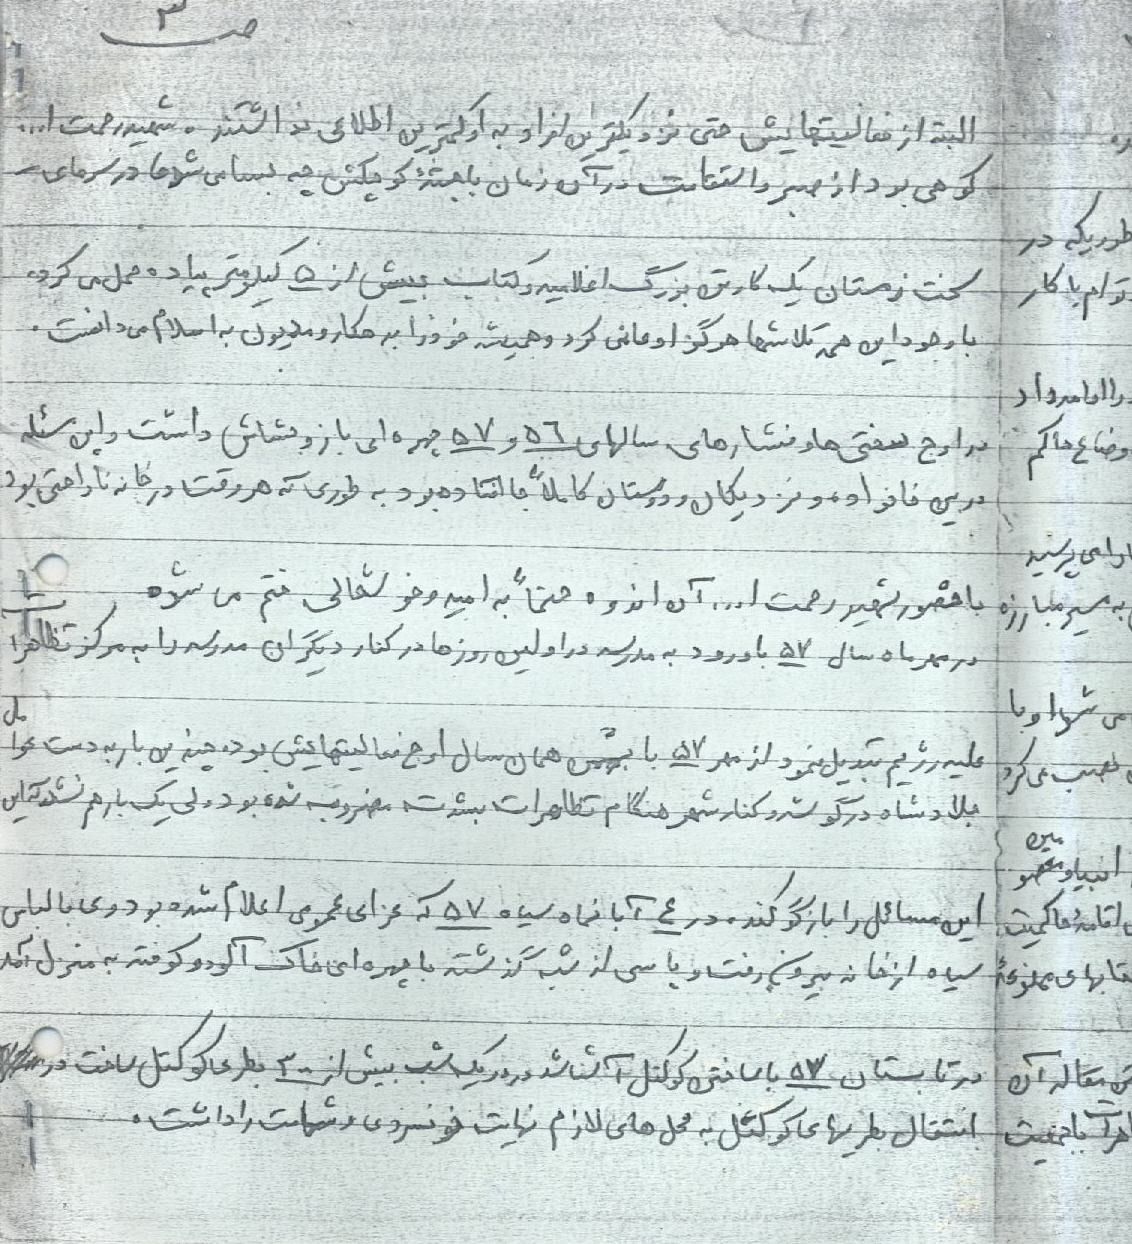 ص ٣
البته از فعالیتهایش حتی نزدیکترین افراد به او کمترین اطلاعی نداشتند. شهید رحمت ا...
کوهی بود از صبر و استقامت در آن زمان با جثهٔ کوچکش چه بسا می شد ها در سرمای
سخت زمستان یک کارتن بزرگ اعلامیه و کتاب بیش از ۵ کیلومتر پیاده حمل می کرد.
با وجود این همه تلاشها هرگز ادعائی نکرد و همیشه خود را بدهکار و مدیون به اسلام می دانست.
در اوج سختی ها و فشارهای سالهای ۵۶ و ۵۷ چهره ای باز و بشاش داشت و این مسئله
در بین خانواده و نزدیکان و دوستان کاملاً جا افتاده بود به طوری که هر وقت در خانه ناراحتی بود
با حضور شهید رحمت ا... آن اندوه حتماً به امید و خوشحالی ختم می شد
در مهر ماه سال ۵۷ با ورود به مدرسه در اولین روزها در کنار دیگران مدرسه را به مرکز تظاهرات
علیه رژیم تبدیل نمود از مهر ۵۷ تا بهمن همان سال اوج فعالیتهایش بود چندین بار به دست عوامل
جلاد شاه در گوشه و کنار شهر هنگام تظاهرات بشدت مضروب شده بود ولی یک بار هم نشد که این
این مسائل را بازگو کند. در ٤ آبانماه سیاه ۵۷ که عزای عمومی اعلام شده بود وی با لباس
سیاه از خانه بیرون رفت و پاسی از شب گذشته با چهره ای خاک آلود و کوفته به منزل آمد
در تابستان ۵۷ با ساختن کوکتل آشنا شد و در یک شب بیش از ۳۰۰ بطری کوکتل ساخت در
انتقال بطریهای کوکتل به محل های لازم نهایت خونسردی و شهامت را داشت.
طوریکه در
توام با کار
را ادامه داد
اوضاع حاکم
می پرسید
به مسیر مبارزه
می شد او با
نصب می کرد
انبیاء و معصومین
اقامهٔ حاکمیت
کتابهای ممنوعهٔ
مقاله آن
با جمعیت